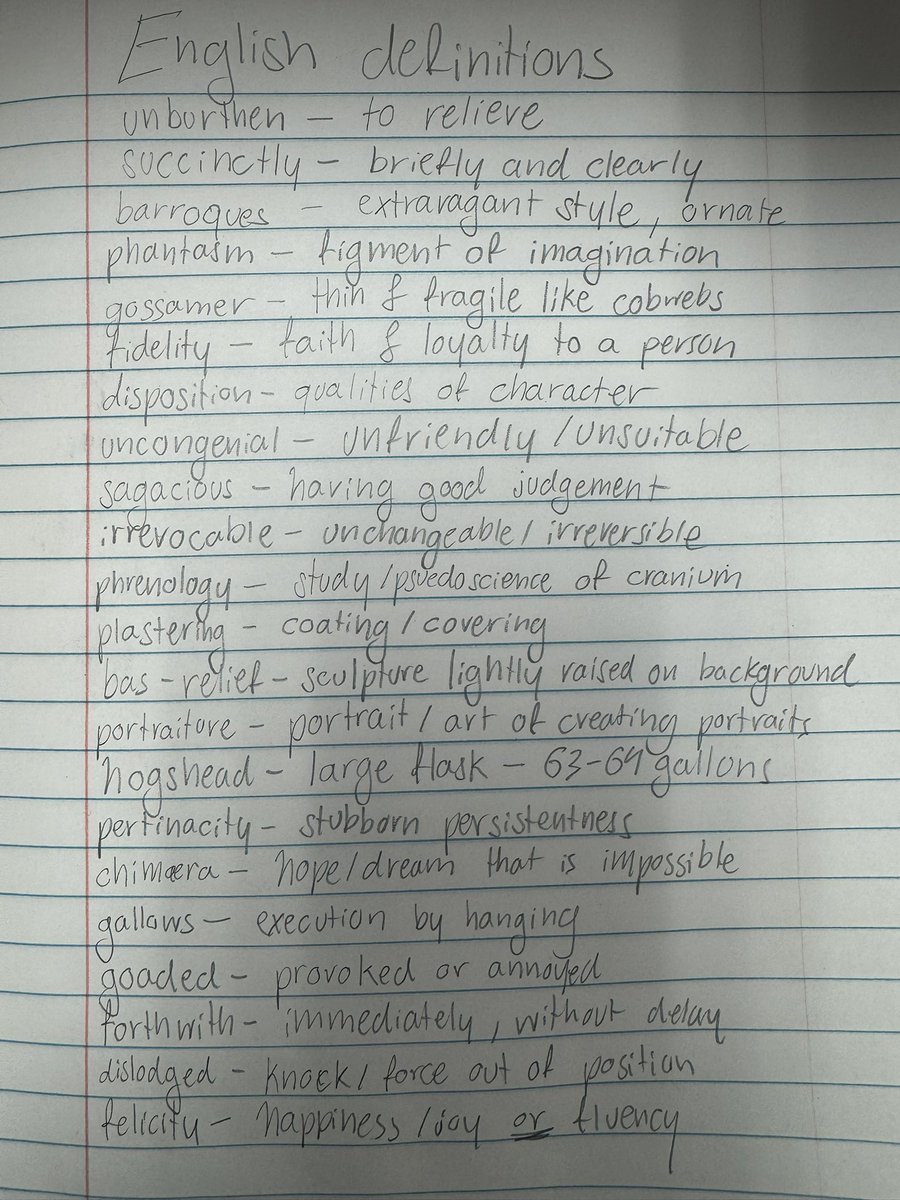 English definitions
unburthen – to relieve
succinctly – briefly and clearly
barroques – extravagant style, ornate
phantasm – figment of imagination
gossamer – thin & fragile like cobwebs
fidelity – faith & loyalty to a person
disposition – qualities of character
uncongenial – unfriendly / unsuitable
sagacious – having good judgement
irrevocable – unchangeable / irreversible
phrenology – study / psuedoscience of cranium
plastering – coating / covering
bas-relief – sculpture lightly raised on background
portraiture – portrait / art of creating portraits
hogshead – large flask – 63-64 gallons
pertinacity – stubborn persistentness
chimæra – hope/dream that is impossible
gallows – execution by hanging
goaded – provoked or annoyed
forthwith – immediately, without delay
dislodged – knock / force out of position
felicity – happiness / joy or fluency